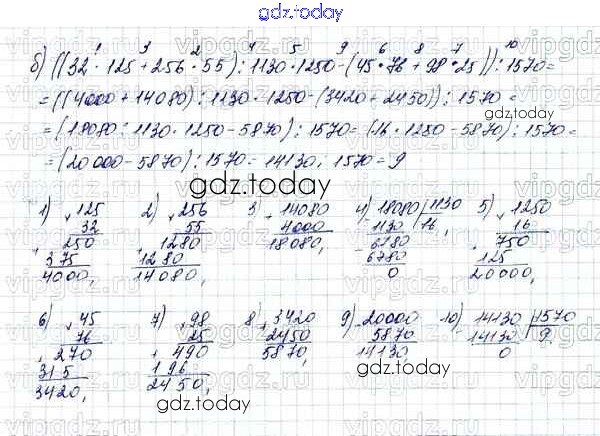 gdz.today
б) ((32 · 125 + 256 · 55) : 1130 · 1250 - (45 · 76 + 98 · 25)) : 1570 =
= ((4000 + 14080) : 1130 · 1250 - (3420 + 2450)) : 1570 =
= (18080 : 1130 · 1250 - 5870) : 1570 = (16 · 1250 - 5870) : 1570 =
= (20000 - 5870) : 1570 = 14130 : 1570 = 9
gdz.today
1) 125 2) 256 3 14080 4) 18080 1130 5) 1250
32 55 4000 1130 16 16
250 1280 18080 6780 750
375 1280 6780 125
4000 14080 0 20000
6) 45 7) 98 8) 3420 9) 20000 10) 14130 1570
76 25 2450 5870 14130 9
270 490 5870 14130 0
315 196
3420 2450
gdz.today
vipgdz.ru